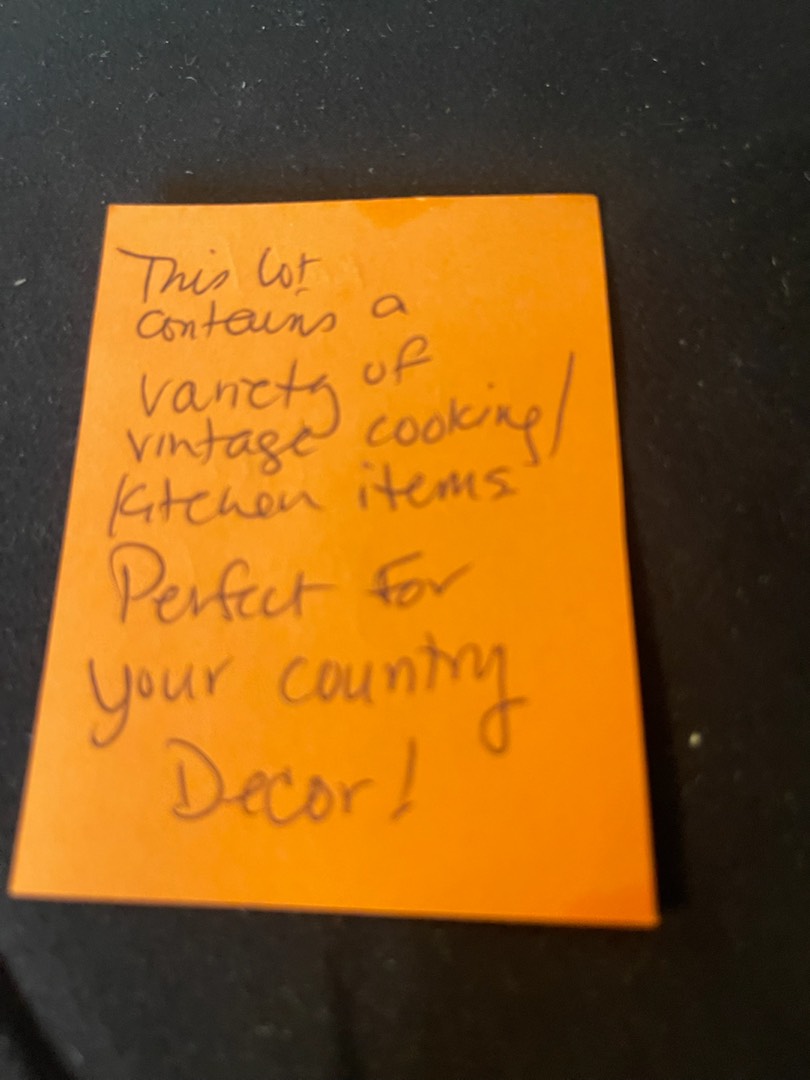 This lot
contains a
variety of
vintage cooking/
Kitchen items
Perfect For
your country
Decor!